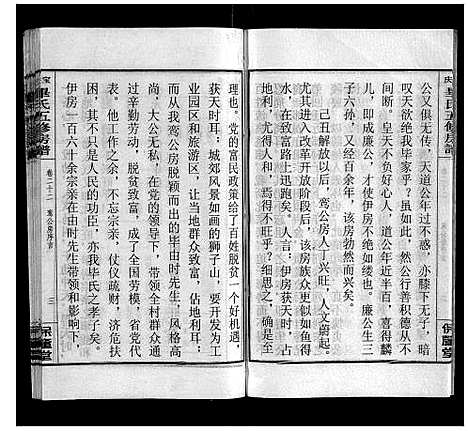 公又俱无传，天道公年过不惑，亦膝下无子，暗
叹天欲绝我毕家乎？虽如此，然公行善积德从不
间断。皇天不负好心人，道公年近半百，喜得麟
儿，即成廉公，才使伊房不绝如缕也。廉公生三
子六孙，又经百余年，该房勃然而兴矣。
己丑解放以后，鸾公房人丁兴旺，人文蔚起。
尤其进入改革开放阶段后，该房族众更似如鱼得
水，在致富路上迅跑矣。人言：伊房获天时，占
地利，尤得人和，焉得不旺乎？细思之，确是至
保厘堂
庆
毕氏五修房谱
卷二十二
鸾公房序言
三
理也。党的富民政策给了百姓脱贫一个好机遇，
此天时耳；城郊风景如画的狮子山，要开发为工
业园区和旅游区，让当地群众致富，佔地利耳；
而从我鸾公房脱颖而出的毕由时先生，风格高
尚，大公无私，在党的领导下，带领全村群众通
过辛勤劳动，脱贫致富，成了全国劳模，省党代
表。他工作之余，不忘宗亲，仗仪疏财，济危扶
困，其不只是人民的功臣，亦我毕氏之孝子矣。
伊房一百六十余宗亲在由时先生带领和影响下，